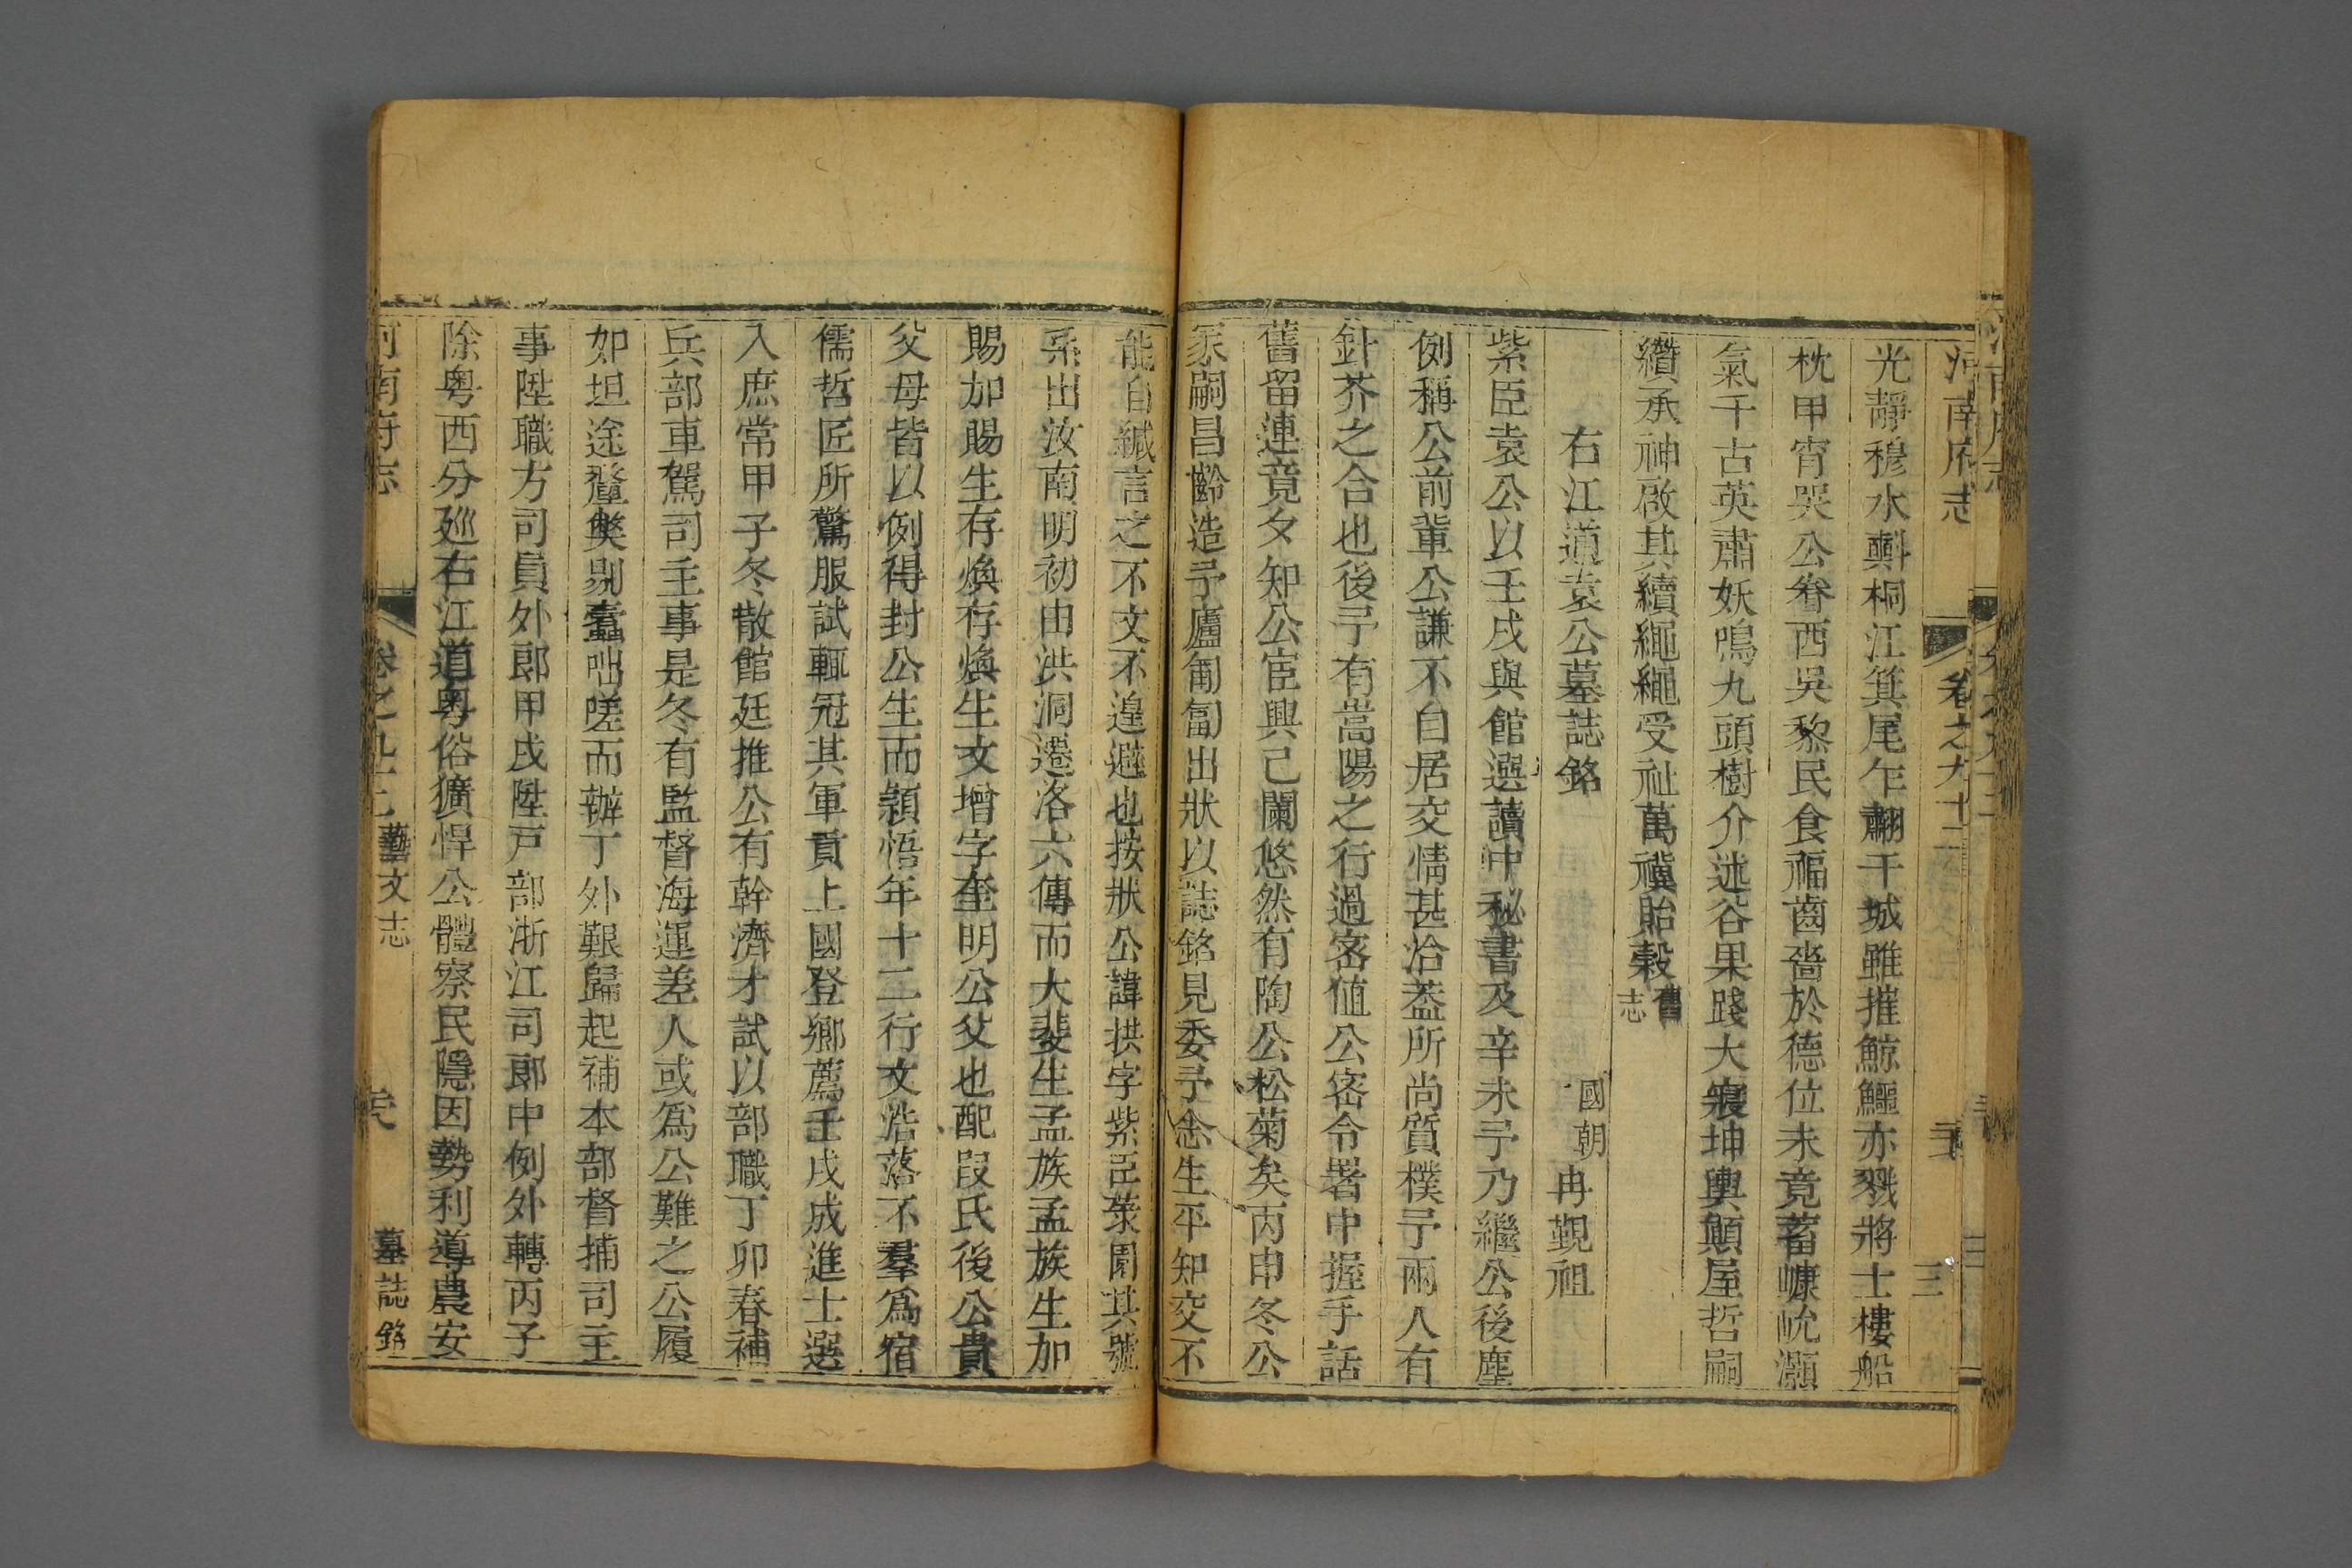 河南府志 卷之九十二
光靜穆水斞桐江箕尾乍翻干城雖摧鯨鱷亦戮將士樓船
枕甲宵哭公眷西吳黎民食福嗇於德位未竟蓄嵻㟏灝
氣千古英肅妖鳴九頭樹介述谷果踐大寢坤輿顛屋哲嗣
纘承神啟其續繩繩受祉萬禩貽穀舊志
右江道袁公墓誌銘 國朝 冉覲祖
紫臣袁公以壬戌與館選讀中秘書及辛未予乃繼公後塵
例稱公前輩公謙不自居交情甚洽葢所尚質樸予兩人有
針芥之合也後予有嵩陽之行過宻值公宻令署中握手話
舊留連竟夕知公宦興已闌悠然有陶公松菊矣丙申冬公
家嗣昌齡造予廬匍匐出狀以誌銘見委予念生平知交不
能自緘言之不文不遑避也按狀公諱拱字紫臣萊園其號
系出汝南明初由洪洞遷洛六傳而大斐生孟族孟族生加
賜加賜生存煥存煥生文增字奎明公父也配段氏後公貴
父母皆以例得封公生而頴悟年十二行文浩落不羣為宿
儒哲匠所驚服試輒冠其軍貢上國登鄉薦壬戌成進士選
入庶常甲子冬散館廷推公有幹濟才試以部職丁卯春補
兵部車駕司主事是冬有監督海運差人或為公難之公履
如坦途釐獘剔蠹咄嗟而辦丁外艱歸起補本部督捕司主
事陞職方司員外郎甲戌陞戸部浙江司郎中例外轉丙子
除粤西分廵右江道粤俗獷悍公體察民隱因勢利導農安
河南府志 卷之九十二 藝文志 墓誌銘